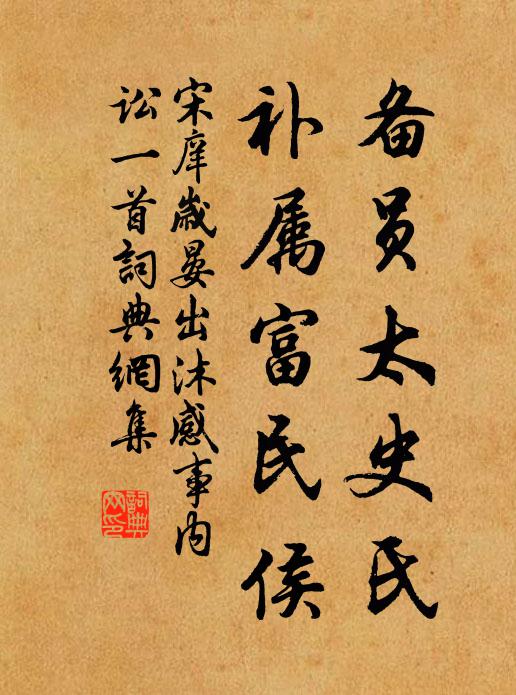 备员太史氏
补属富民侯
宋庠歳晏出沐感事内
讼一首詞典網集
詞典網印